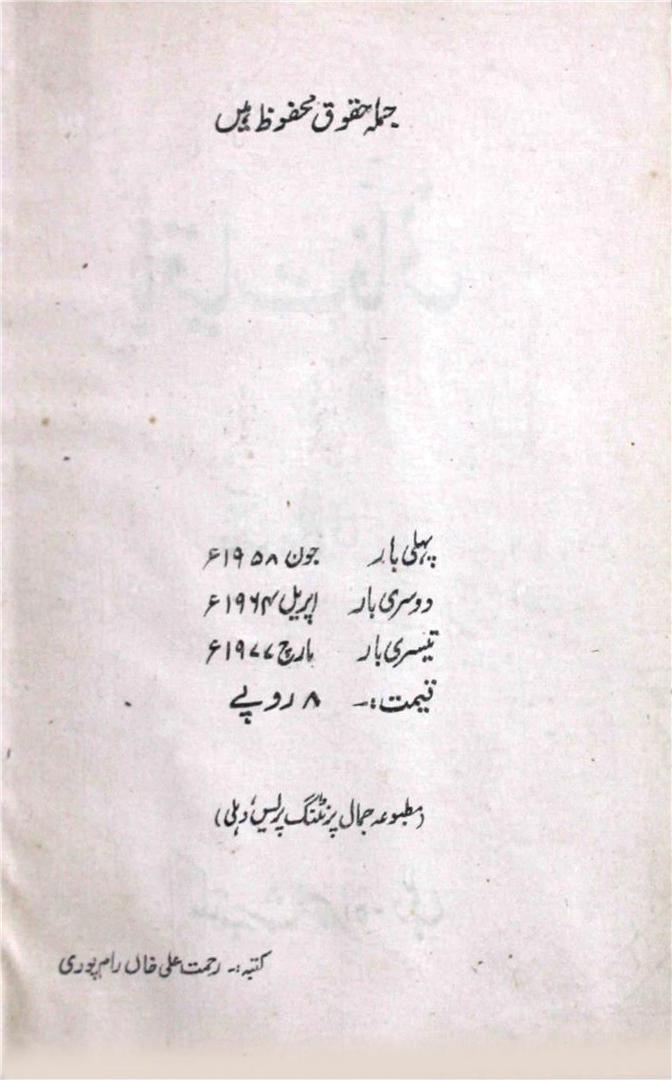 جملہ حقوق محفوظ ہیں
پہلی بار جون ۱۹۵۸ء
دوسری بار اپریل ۱۹۶۴ء
تیسری بار مارچ ۱۹۷۷ء
قیمت:۔ ۸ روپے
(مطبوعہ جمال پرنٹنگ پریس، دہلی)
کتبہ:۔ رحمت علی خاں رام پوری